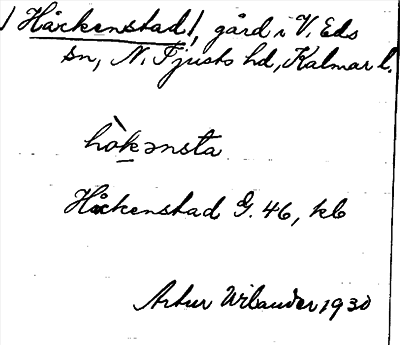 /Håckenstad/, gård i V. Eds
sn, N. Tjusts hd, Kalmar l.
hòkənsta
Håckenstad G. 46, kb
Artur Wilander, 1930